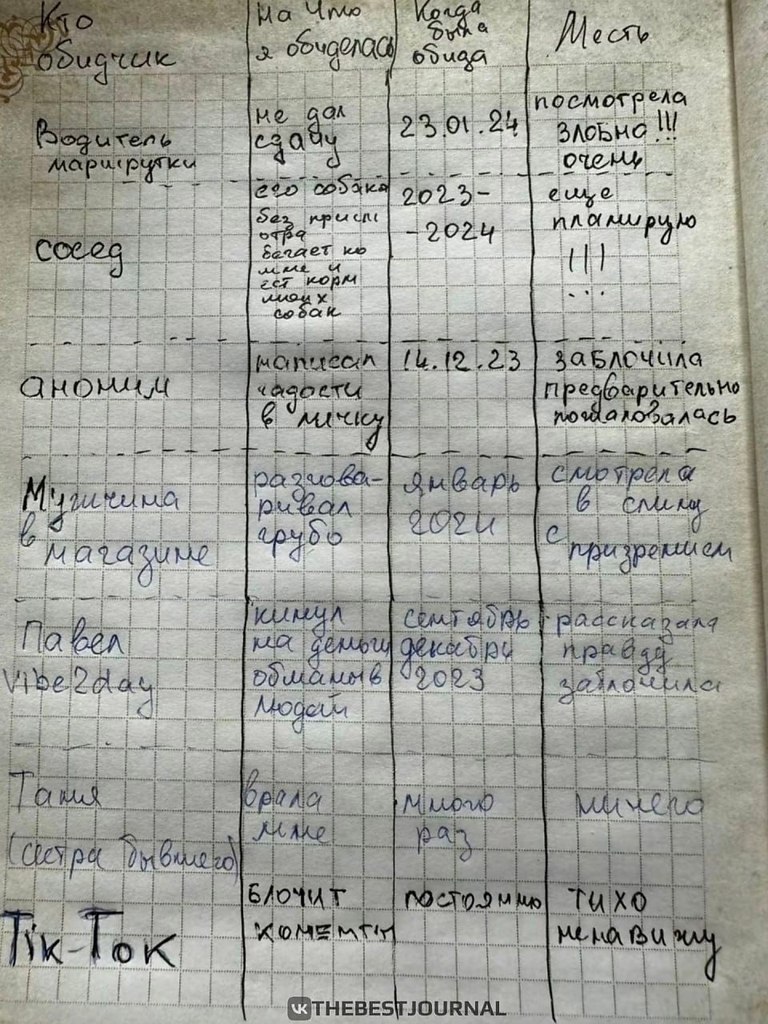 Кто
обидчик
На что
я обиделась
Когда
была
обида
Месть
Водитель
маршрутки
не дал
сдачу
23.01.24
посмотрела
злобно!!!
очень
сосед
его собака
без присм
отра
бегает ко
мне и
ест корм
моих
собак
2023-
-2024
еще
планирую
!!!
аноним
написал
гадости
в личку
14.12.23
заблочила
предварительно
пожаловалась
Мужчина
в
магазине
разгова-
ривал
грубо
январь
2024
смотрела
в спину
с
призрением
Павел
Vibe2day
кинул
на деньги
обманыв
людей
сентябрь
декабрь
2023
рассказала
правду
заблочила
Таня
(сестра бывшего)
врала
мне
много
раз
ничего
Tik-Tok
блочит
коменты
постоянно
тихо
ненавижу
THEBESTJOURNAL